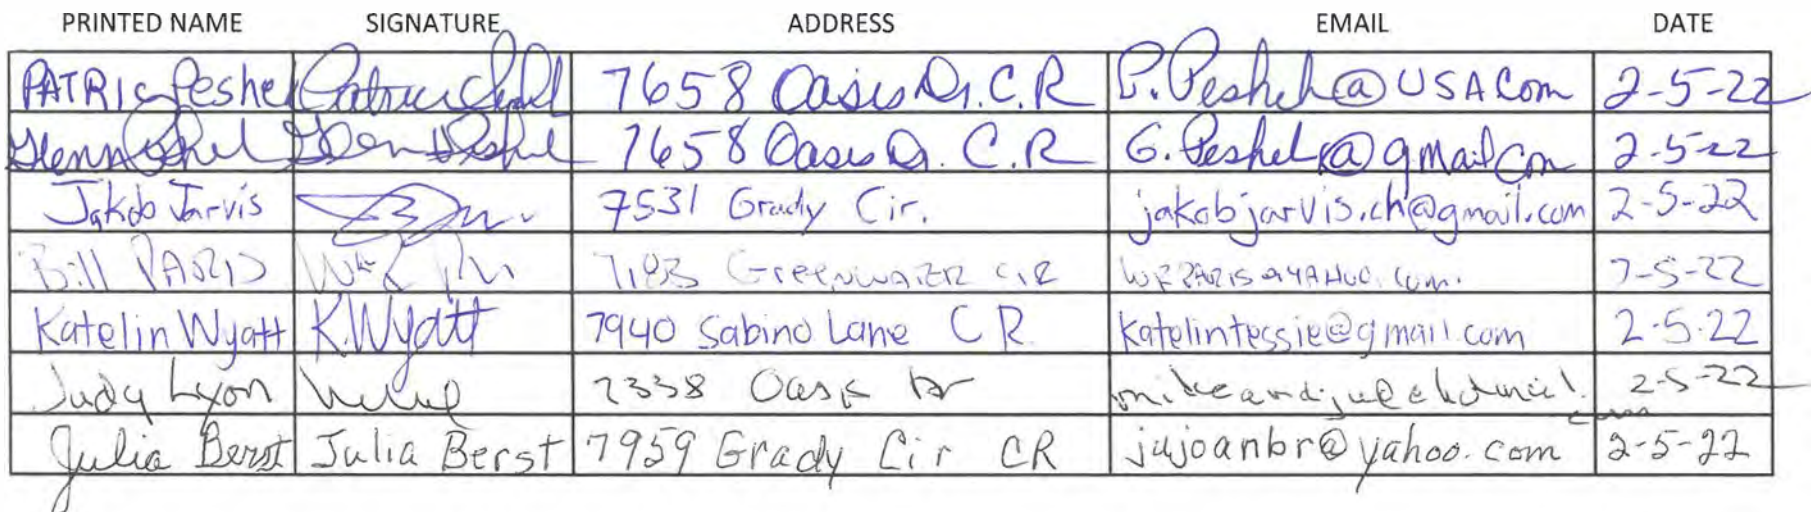 PRINTED NAME SIGNATURE ADDRESS EMAIL DATE
PATRIC Peshel 7658 Oasis Dr. C.R P.Peshel@USA Com 2-5-22
Glenn Peshel Glenn Peshel 7658 Oasis Dr. C.R G.Peshel@gmail Com 2-5-22
Jakob Jarvis 7531 Grady Cir. jakobjarvis.ch@gmail.com 2-5-22
Bill PARIS Greenwater CIR 2-5-22
Katelin Wyatt K.Wyatt 7940 Sabino Lane C R katelintessie@gmail.com 2-5-22
Judy Lyon 7338 Oasis Dr 2-5-22
Julia Berst Julia Berst 7959 Grady Cir CR jujoanbr@yahoo.com 2-5-22